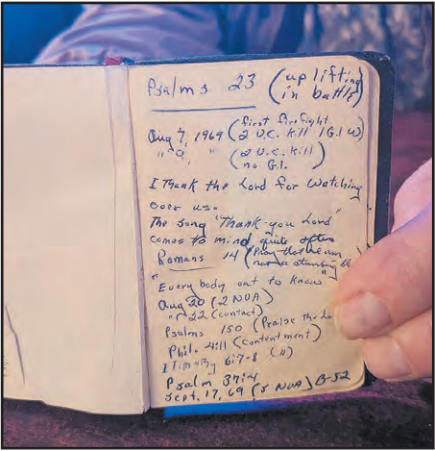 Psalms 23 (up lifting
in battle)
Aug 7, 1969 (first firefight
2 V.C. Kill 1 G.I. W)
" 9, " (2 V.C. Kill
no G.I.)
I Thank the Lord for Watching
over us.
The song "Thank-you Lord"
comes to mind quite often
Romans 14 (Pray that we are
not a stumbling
"Every body out to Know"
Aug 20 (2 NVA)
" 22 (contact)
Psalms 150 (Praise the Lo
Phil. 4:11 (contentment)
I Timothy 6:7-8 (")
Psalm 37:4
Sept. 17, 69 (5 NVA) B-52